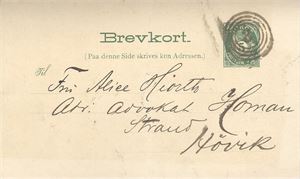 Brevkort.
(Paa denne Side skrives kun Adressen.)
Til
Fru Alice Hiorth
Adr. Advokat Homan
Strand
Høvik